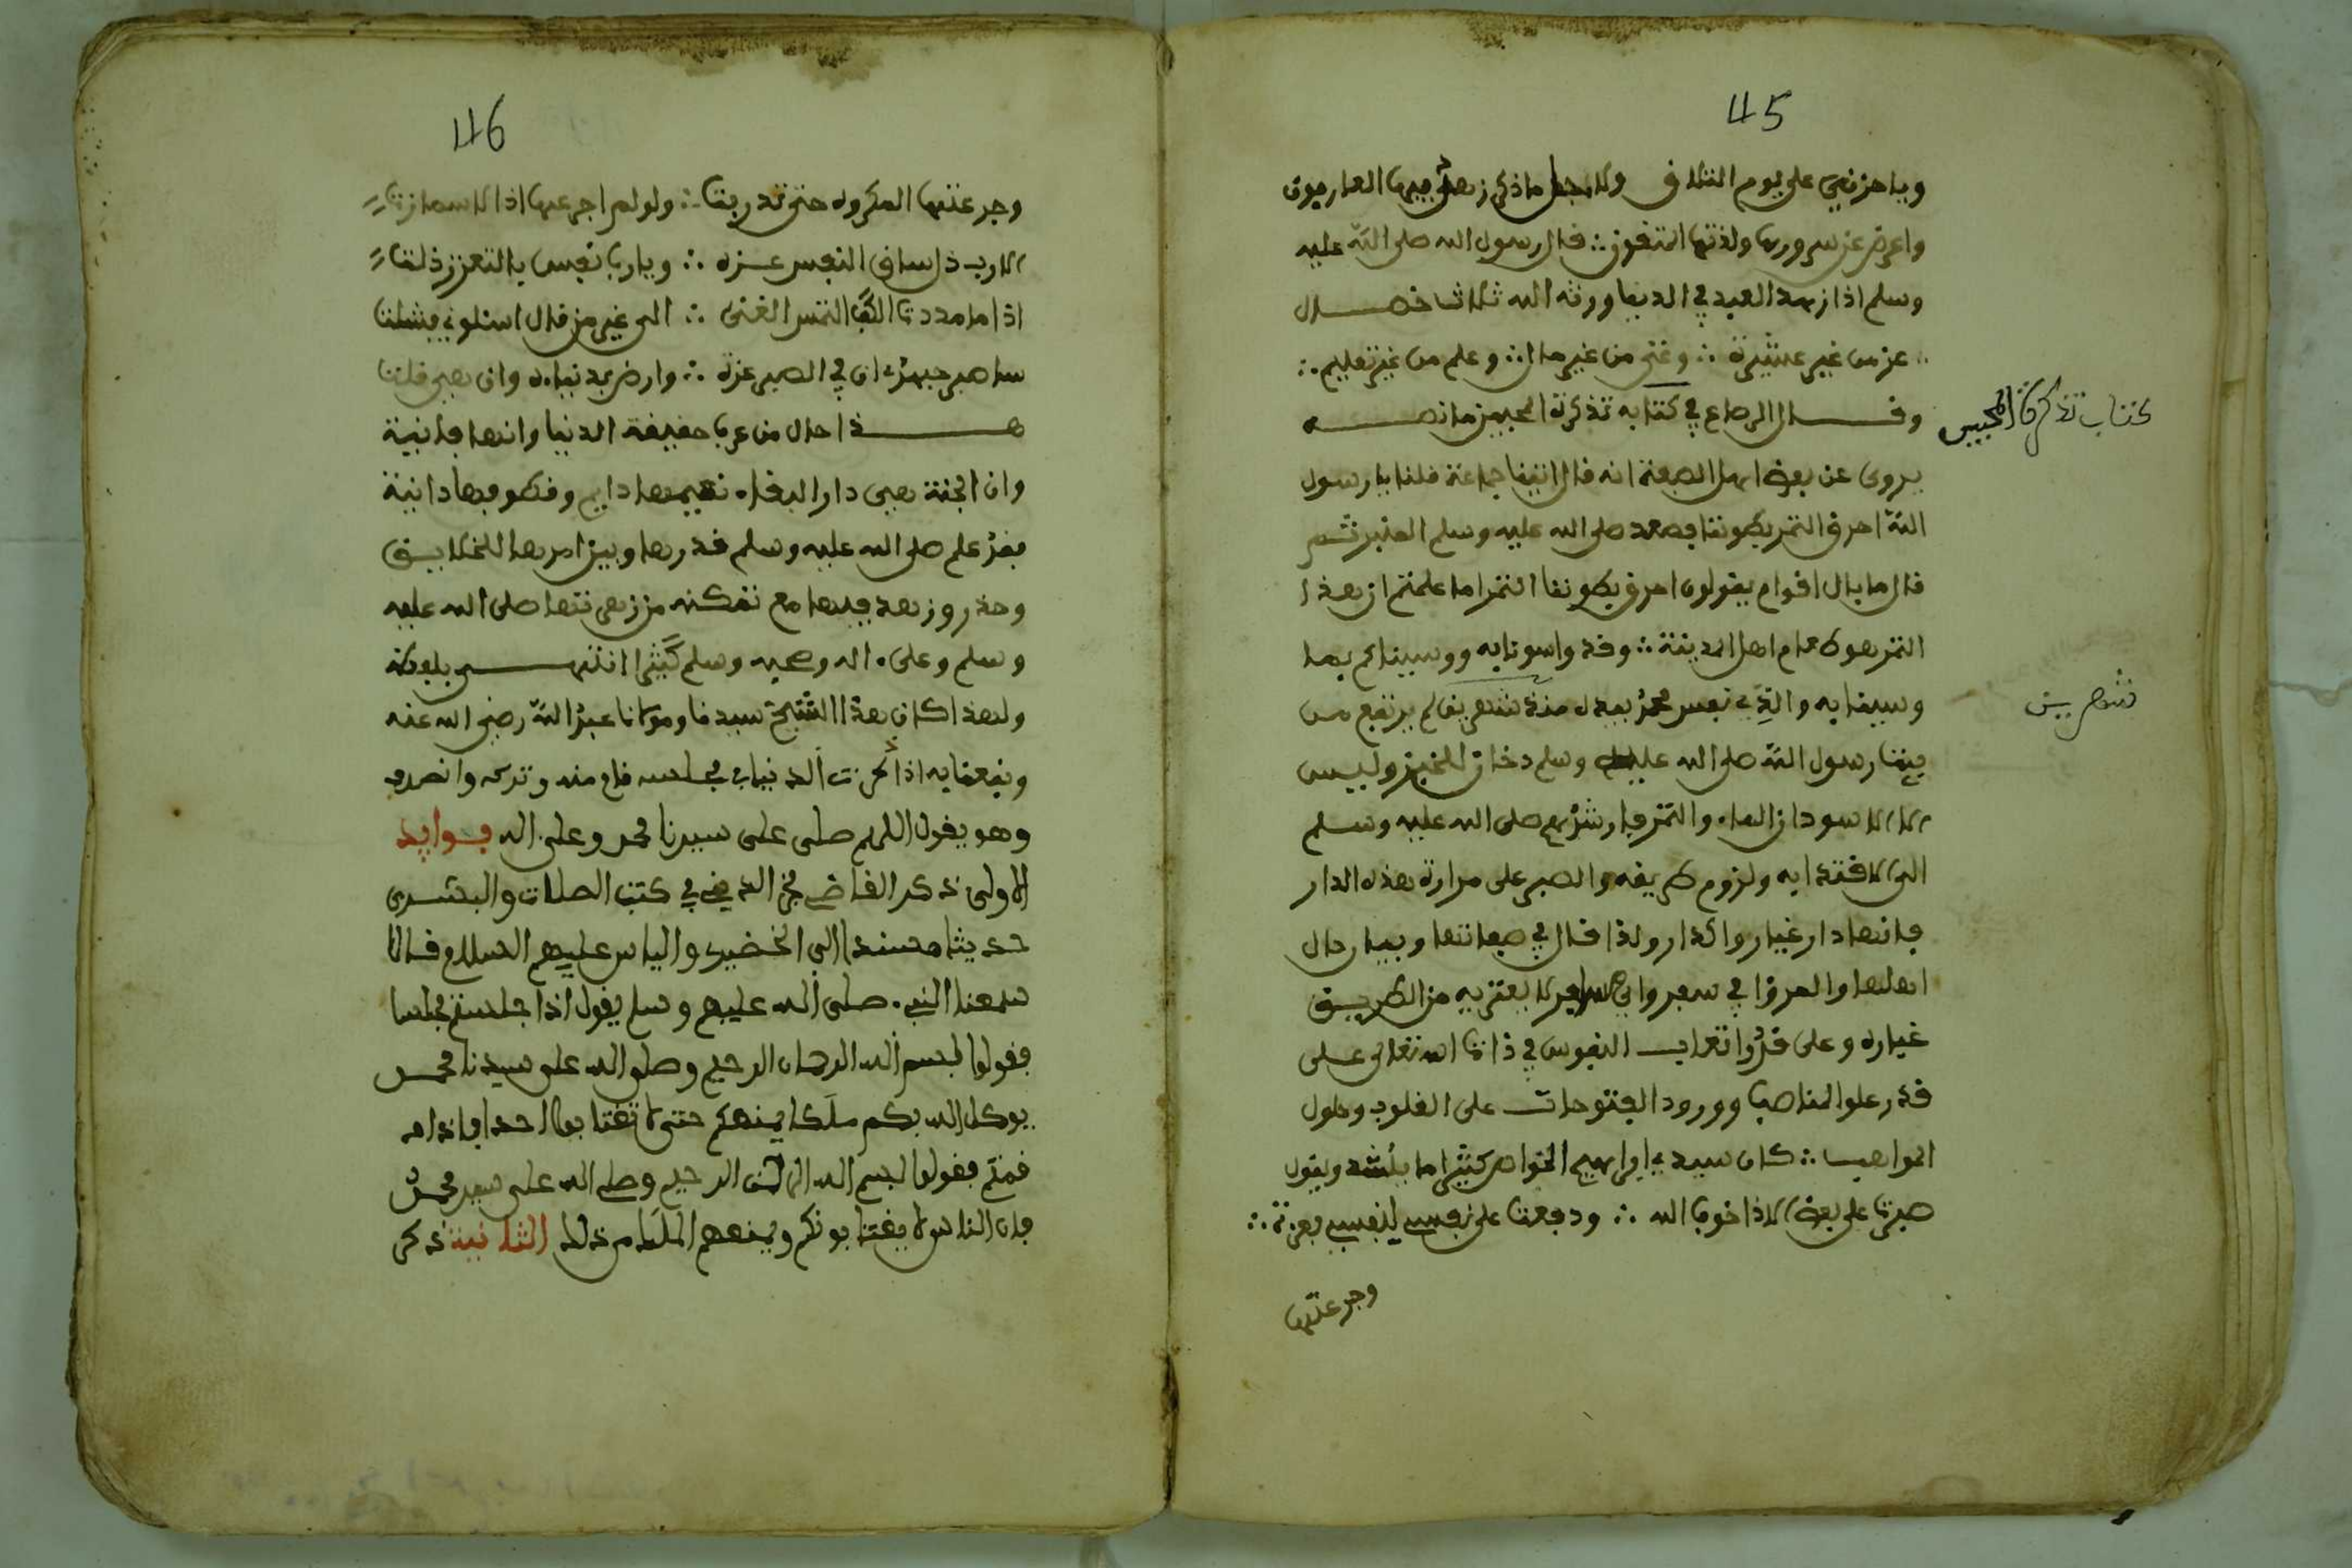 45
ويا حزني على يوم التلاق ولاجل ما ذكر زهد فيها العارفون
واعرض عن سرورها ولذتها المتقون ∴ قال رسول الله صلى الله عليه
وسلم اذا زهد العبد في الدنيا ورثه الله ثلاثا خصال
∴ عز من غير عشيرة ∴ وغنى من غير مال ∴ وعلم من غير تعليم ∴
وقال الرصاع في كتابه تذكرة المحبين ما نصه
كتاب تذكرة المحبين
يروى عن بعض اهل الصفة انه قال اتينا جماعة فلنا يا رسول
الله احرق التمر بطوننا فصعد صلى الله عليه وسلم المنبر ثم
قال ما بال اقوام يقولون احرق بطوننا التمر اما علمتم ان هذا
التمر هو طعام اهل المدينة ∴ وقد واسونا به وواسيناكم بما
واسينا به والذي نفس محمد بيده منذ شهرين لم يرتفع من
شهرين
بيت رسول الله صلى الله عليه وسلم دخان للخبز وليس
الا الاسودان الماء والتمر فارشدهم صلى الله عليه وسلم
الى الاقتداء به ولزوم طريقه والصبر على مرارة هذه الدار
فانها دار غيار واكدار ولذا قال في صفاتها وبيان حال
اهلها والمرؤا في سفر وابي السفر لا يعتريه من الطريق
غباره وعلى قدر اتعاب النفوس في ذات الله تعالى على
قدر علو المناصب وورود الفتوحات على القلوب وحلول
المواهب ∴ كان سيدي ابراهيم الخواص كثيرا ما ينشد ويقول
صبرت على بعض الاذا خوف الله ∴ ودفعت على نفسي لنفسي بعزت ∴
وجرعتها
46
وجرعتها المكروه حتى تدربت ∴ ولو لم اجرعها اذا لاشمازت
الا رب ذل ساق للنفس عزه ∴ ويا رب نفس بالتعزز ذلت
اذا ما مددت الكف التمس الغنى ∴ الى غير من قال اسئلوني فشلت
ساصبر جهدي ان في الصبر عزة ∴ وارضى بدنياي وان هي قلت
هذا حال من عرف حقيقة الدنيا وانها فانية
وان الجنة هي دار البقاء نعيمها دايم وقطوفها دانية
فقد علم صلى الله عليه وسلم قدرها وبين امرها للخلايق
وحذر وزهد فيها مع تمكنه من زهرتها صلى الله عليه
وسلم وعلى اله وصحبه وسلم كثيرا انتهى بلفظه
ولهذا كان هذا الشيخ سيدنا ومولانا عبد الله رضي الله عنه
ونفعنا به اذا ذكرت الدنيا في مجلسه قام منه وتركه وانصرف
وهو يقول اللهم صلى على سيدنا محمد وعلى اله فوايد
الاولى ذكر القاضي مجد الدين في كتب الصلات والبشرى
حديثا مسندا الى الخضر والياس عليهم السلام قالا
سمعنا النبي صلى الله عليه وسلم يقول اذا جلستم مجلسا
فقولوا بسم الله الرحمان الرحيم وصلى الله على سيدنا محمد
يوكل الله بكم ملكا يمنعكم حتى لا تغتابوا احدا فاذا
قمتم فقولوا بسم الله الرحمن الرحيم وصلى الله على سيد محمد
فان الناس لا يغتابونكم ويمنعهم الملك من ذلك الثانية ذكر